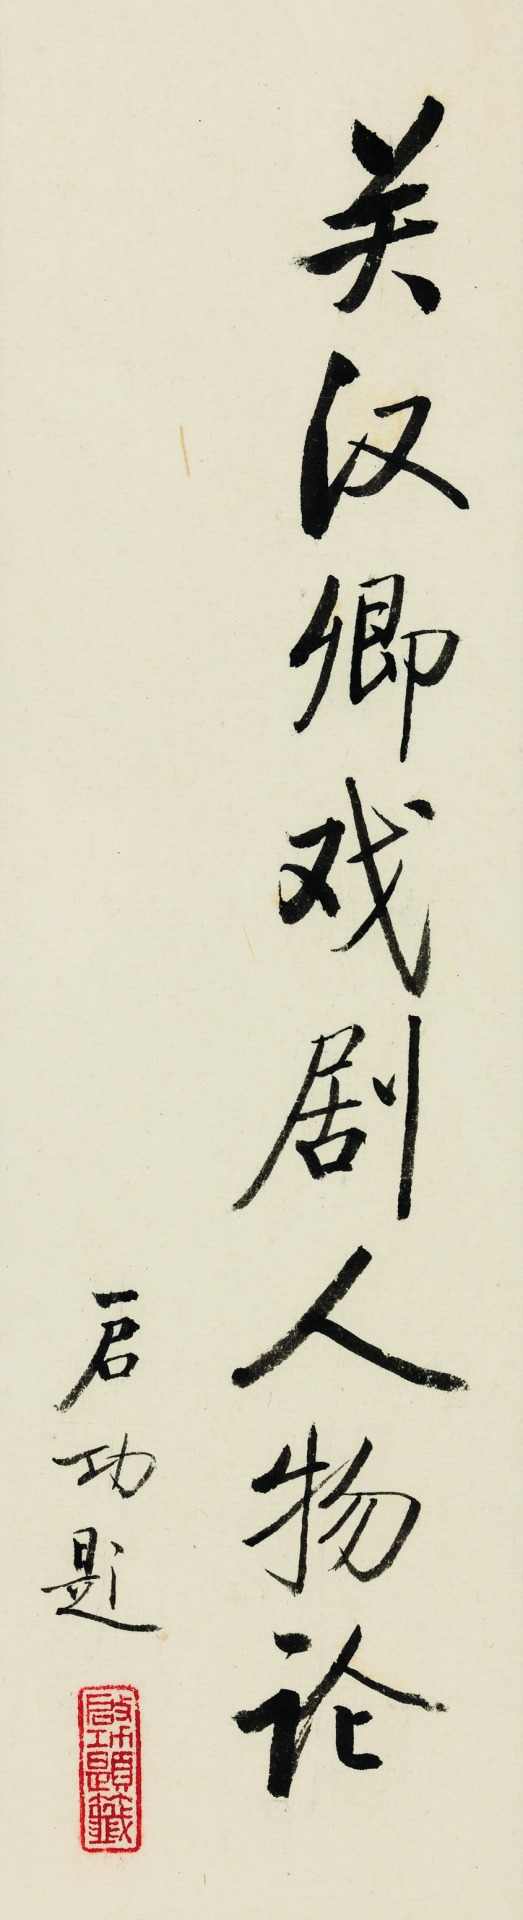 关汉卿戏剧人物论
启功题
啟功題籤